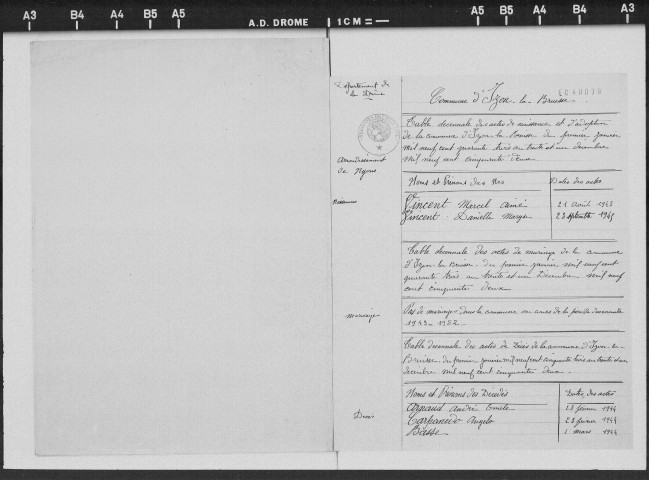 A3 B4 A4 B5 A5 A.D. DROME 1 CM = A5 B5 A4 B4 A3
Département de
la Drôme
Arrondissement
de Nyons
Commune d'Izon-la-Bruisse
Table décennale des actes de naissance et d'adoption
de la commune d'Izon-la-Bruisse du premier janvier
mil neuf cent quarante trois au trente et un décembre
mil neuf cent cinquante deux
Noms et Prénoms des Nés Dates des actes
Naissances
Vincent Marcel Aimé 21 août
Vincent Danielle 23 septembre 1945
Table décennale des actes de mariage de la commune
d'Izon-la-Bruisse du premier janvier mil neuf cent
quarante trois au trente et un Décembre mil neuf
cent cinquante deux
Mariage
Pas de mariage dans la commune au cours de la période
1943-1952
Table décennale des actes de Décès de la commune d'Izon-la-
Bruisse du premier janvier mil neuf cent trois au trente et un
décembre mil neuf cent cinquante deux
Noms et Prénoms des Décédés Dates des actes
Décès
Arnaud André Emile février 1944
Angelo 23 février 1944
mars 1944